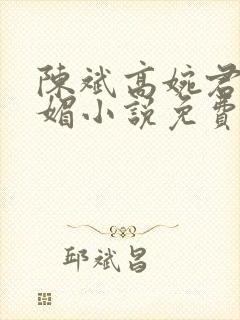 陳斌高婉君
媚小說免費
邱斌昌